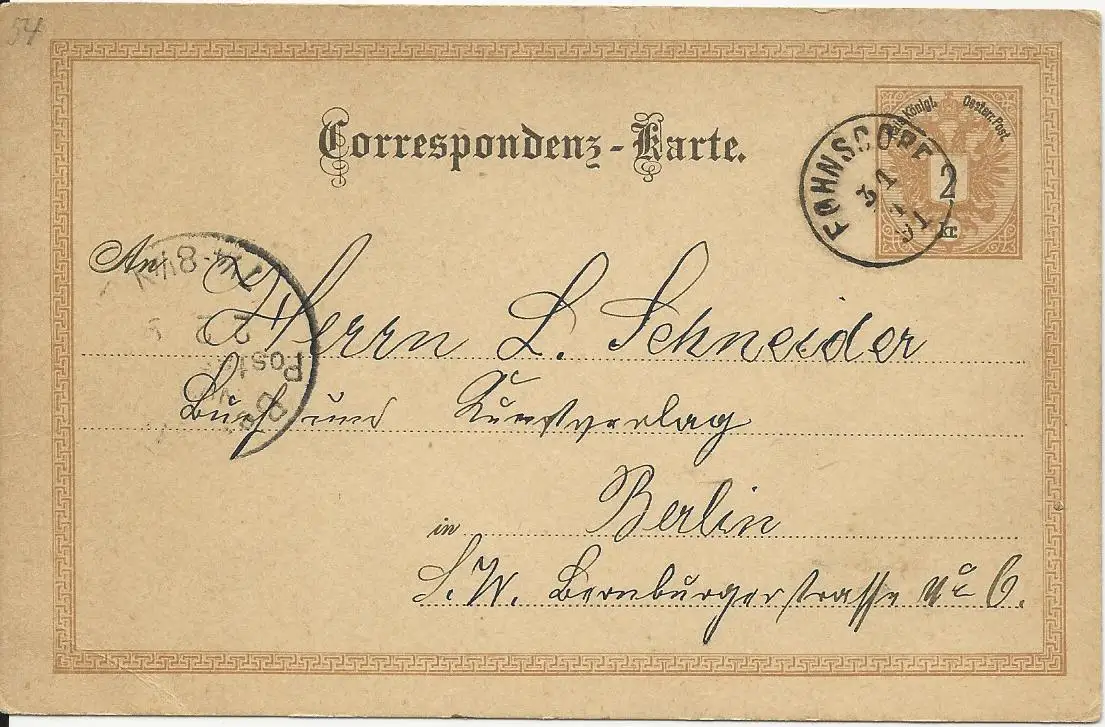 54
Correspondenz-Karte.
Königl. Oesterr. Post.
2
kr.
FOHNSDORF
An Herrn L. Schneider
Buch und Kunstverlag
in Berlin
S. W. Bernburgerstrasse No 6.
7¼-8½N
2
2
Post